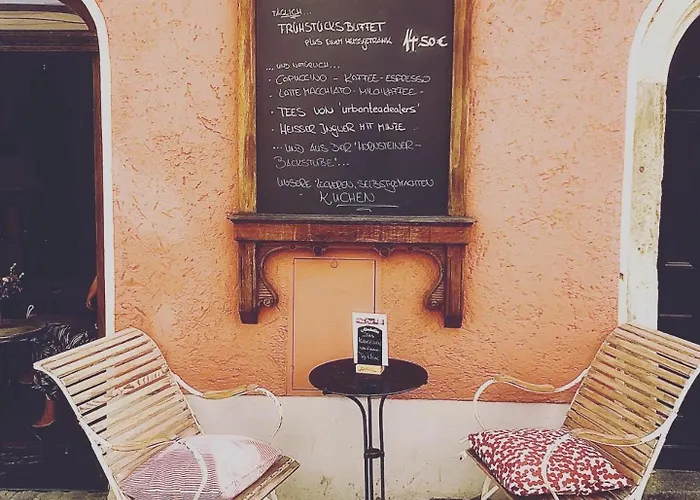 TÄGLICH...
FRÜHSTÜCKSBUFFET
PLUS EINEM HEISSGETRÄNK 14.50 €
...UND NATÜRLICH...
· CAPUCCINO - KAFFEE - ESPRESSO
· LATTE MACCHIATO - MILCHKAFFEE -
· TEES VON 'urbanteadealers'
· HEISSER INGWER MIT MINZE..
...UND AUS DER 'HORNSTEINER-
BACKSTUBE'...
UNSERE LECKEREN, SELBSTGEMACHTEN
- KUCHEN